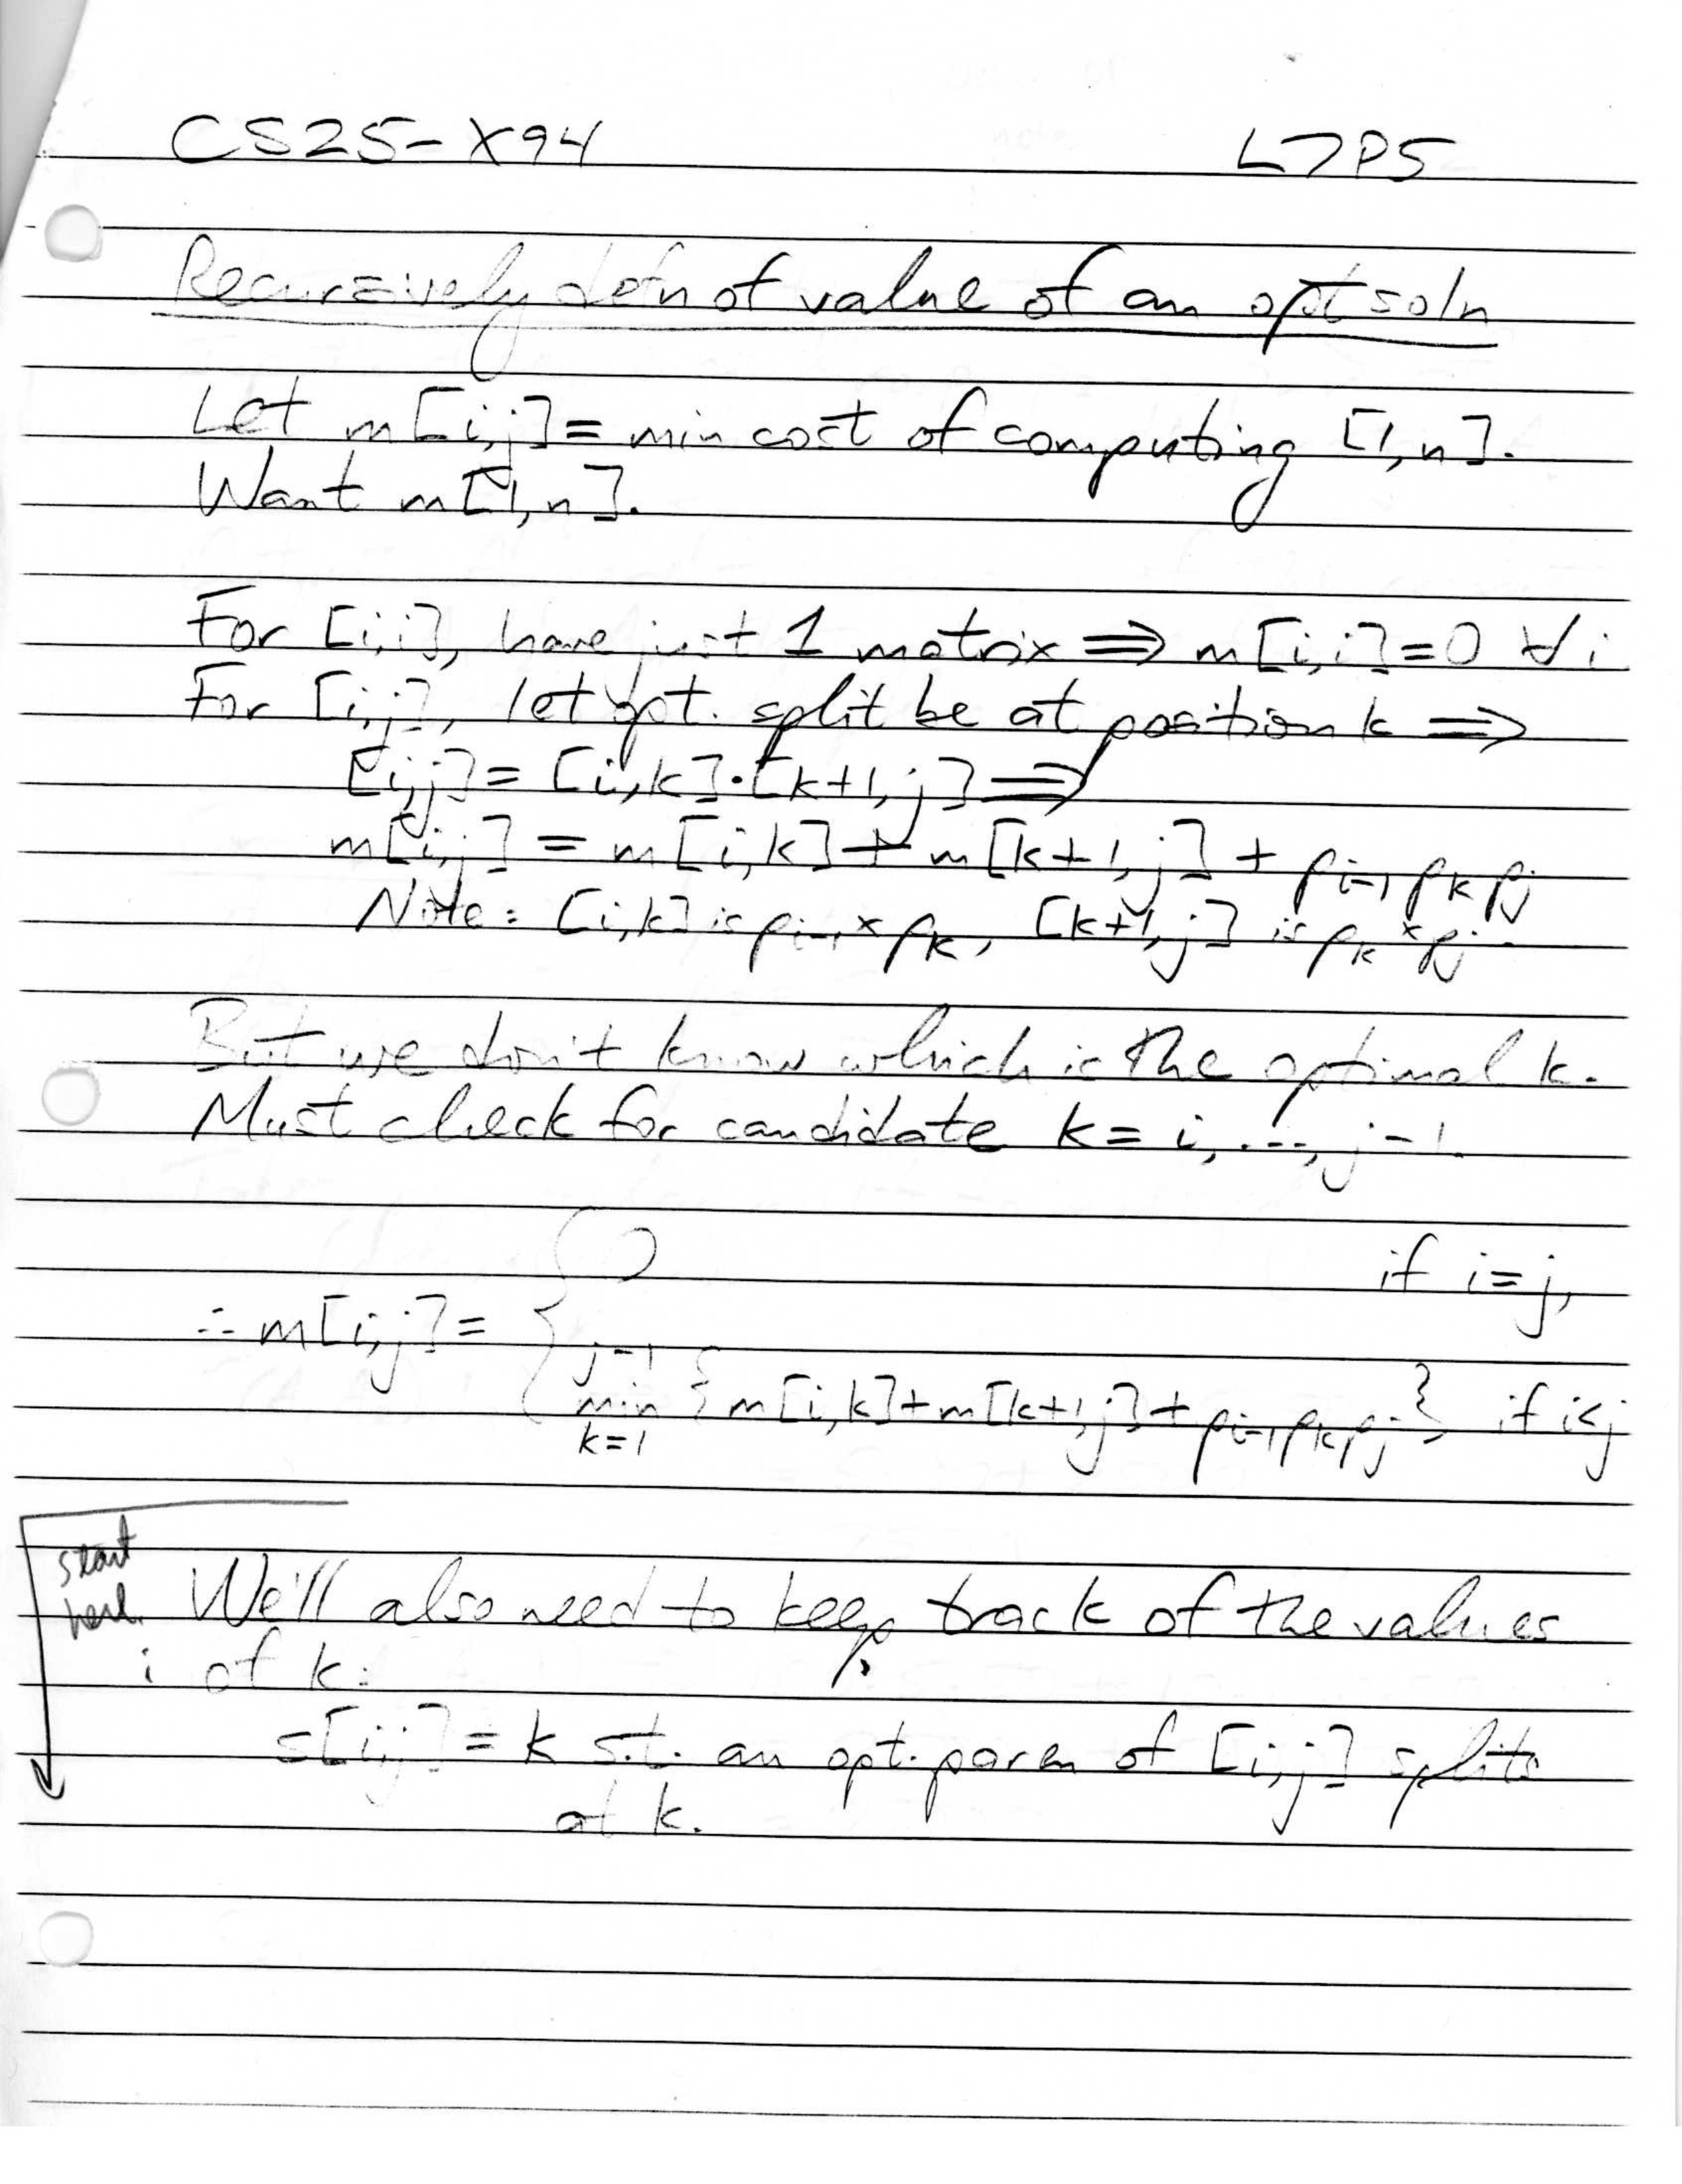 CS25-X94 L7P5
Recursively defn of value of an opt soln
Let m[i,j] = min cost of computing [1,n].
Want m[1,n].
For [i,i], have just 1 matrix ⇒ m[i,i]=0 ∀i
For [i,j], let opt. split be at position k ⇒
[i,j] = [i,k]·[k+1,j] ⇒
m[i,j] = m[i,k] + m[k+1,j] + p_{i-1} p_k p_j
Note: [i,k] is p_{i-1} × p_k, [k+1,j] is p_k × p_j.
But we don't know which is the optimal k.
Must check for candidate k = i, ..., j-1.
0 if i=j,
∴ m[i,j] = {
j-1
min {m[i,k]+m[k+1,j]+p_{i-1}p_kp_j}, if i<j
k=1
start
here
We'll also need to keep track of the values
i of k:
s[i,j] = k s.t. an opt. paren of [i,j] splits
at k.